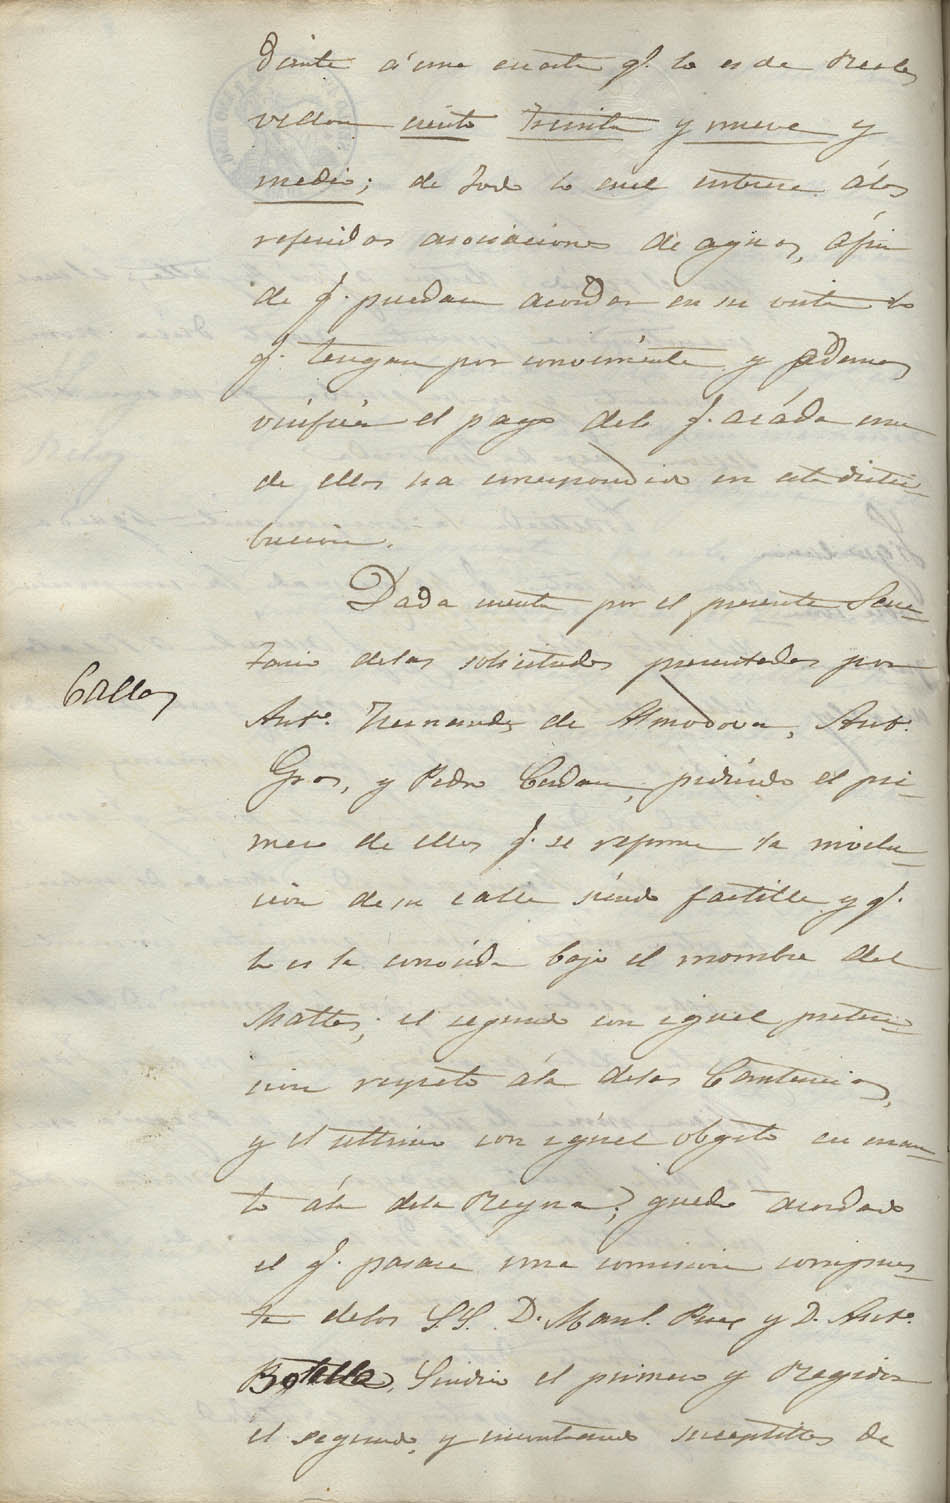 diente á una cuarta q.e lo es de Reales
vellon ciento treinta y nueve y
medio; de todo lo cual entérese á las
referidas asociaciones de aguas, á fin
de q.e puedan acordar en su vista lo
q.e tengan por conveniente y ademas
verifiquen el pago delo q.e acáda una
de ellas ha correspondido en esta distri-
bucion.
Dada cuenta por el presente Secre-
tario delas solicitudes presentadas por
Calles
Ant.o Hernandez de Almodova, Ant.o
Gros, y Pedro Cerdan, pidiendo el pri-
mero de ellos q.e se reforme la
cion de su calle siendo factible y q.e
lo es la conocida bajo el nombre del
Mattos; el segundo con igual preten-
cion respeto ála delas Cantericas,
y el ultimo con igual obgeto en cuan-
to ála dela Reyna; quedo acordado
el q.e pasase una comision compues-
ta delos S.S. D. Man.l Ruiz y D. Ant.o
Botella, Sindico el primero y Regidor
el segundo, y encontrando suceptibles de